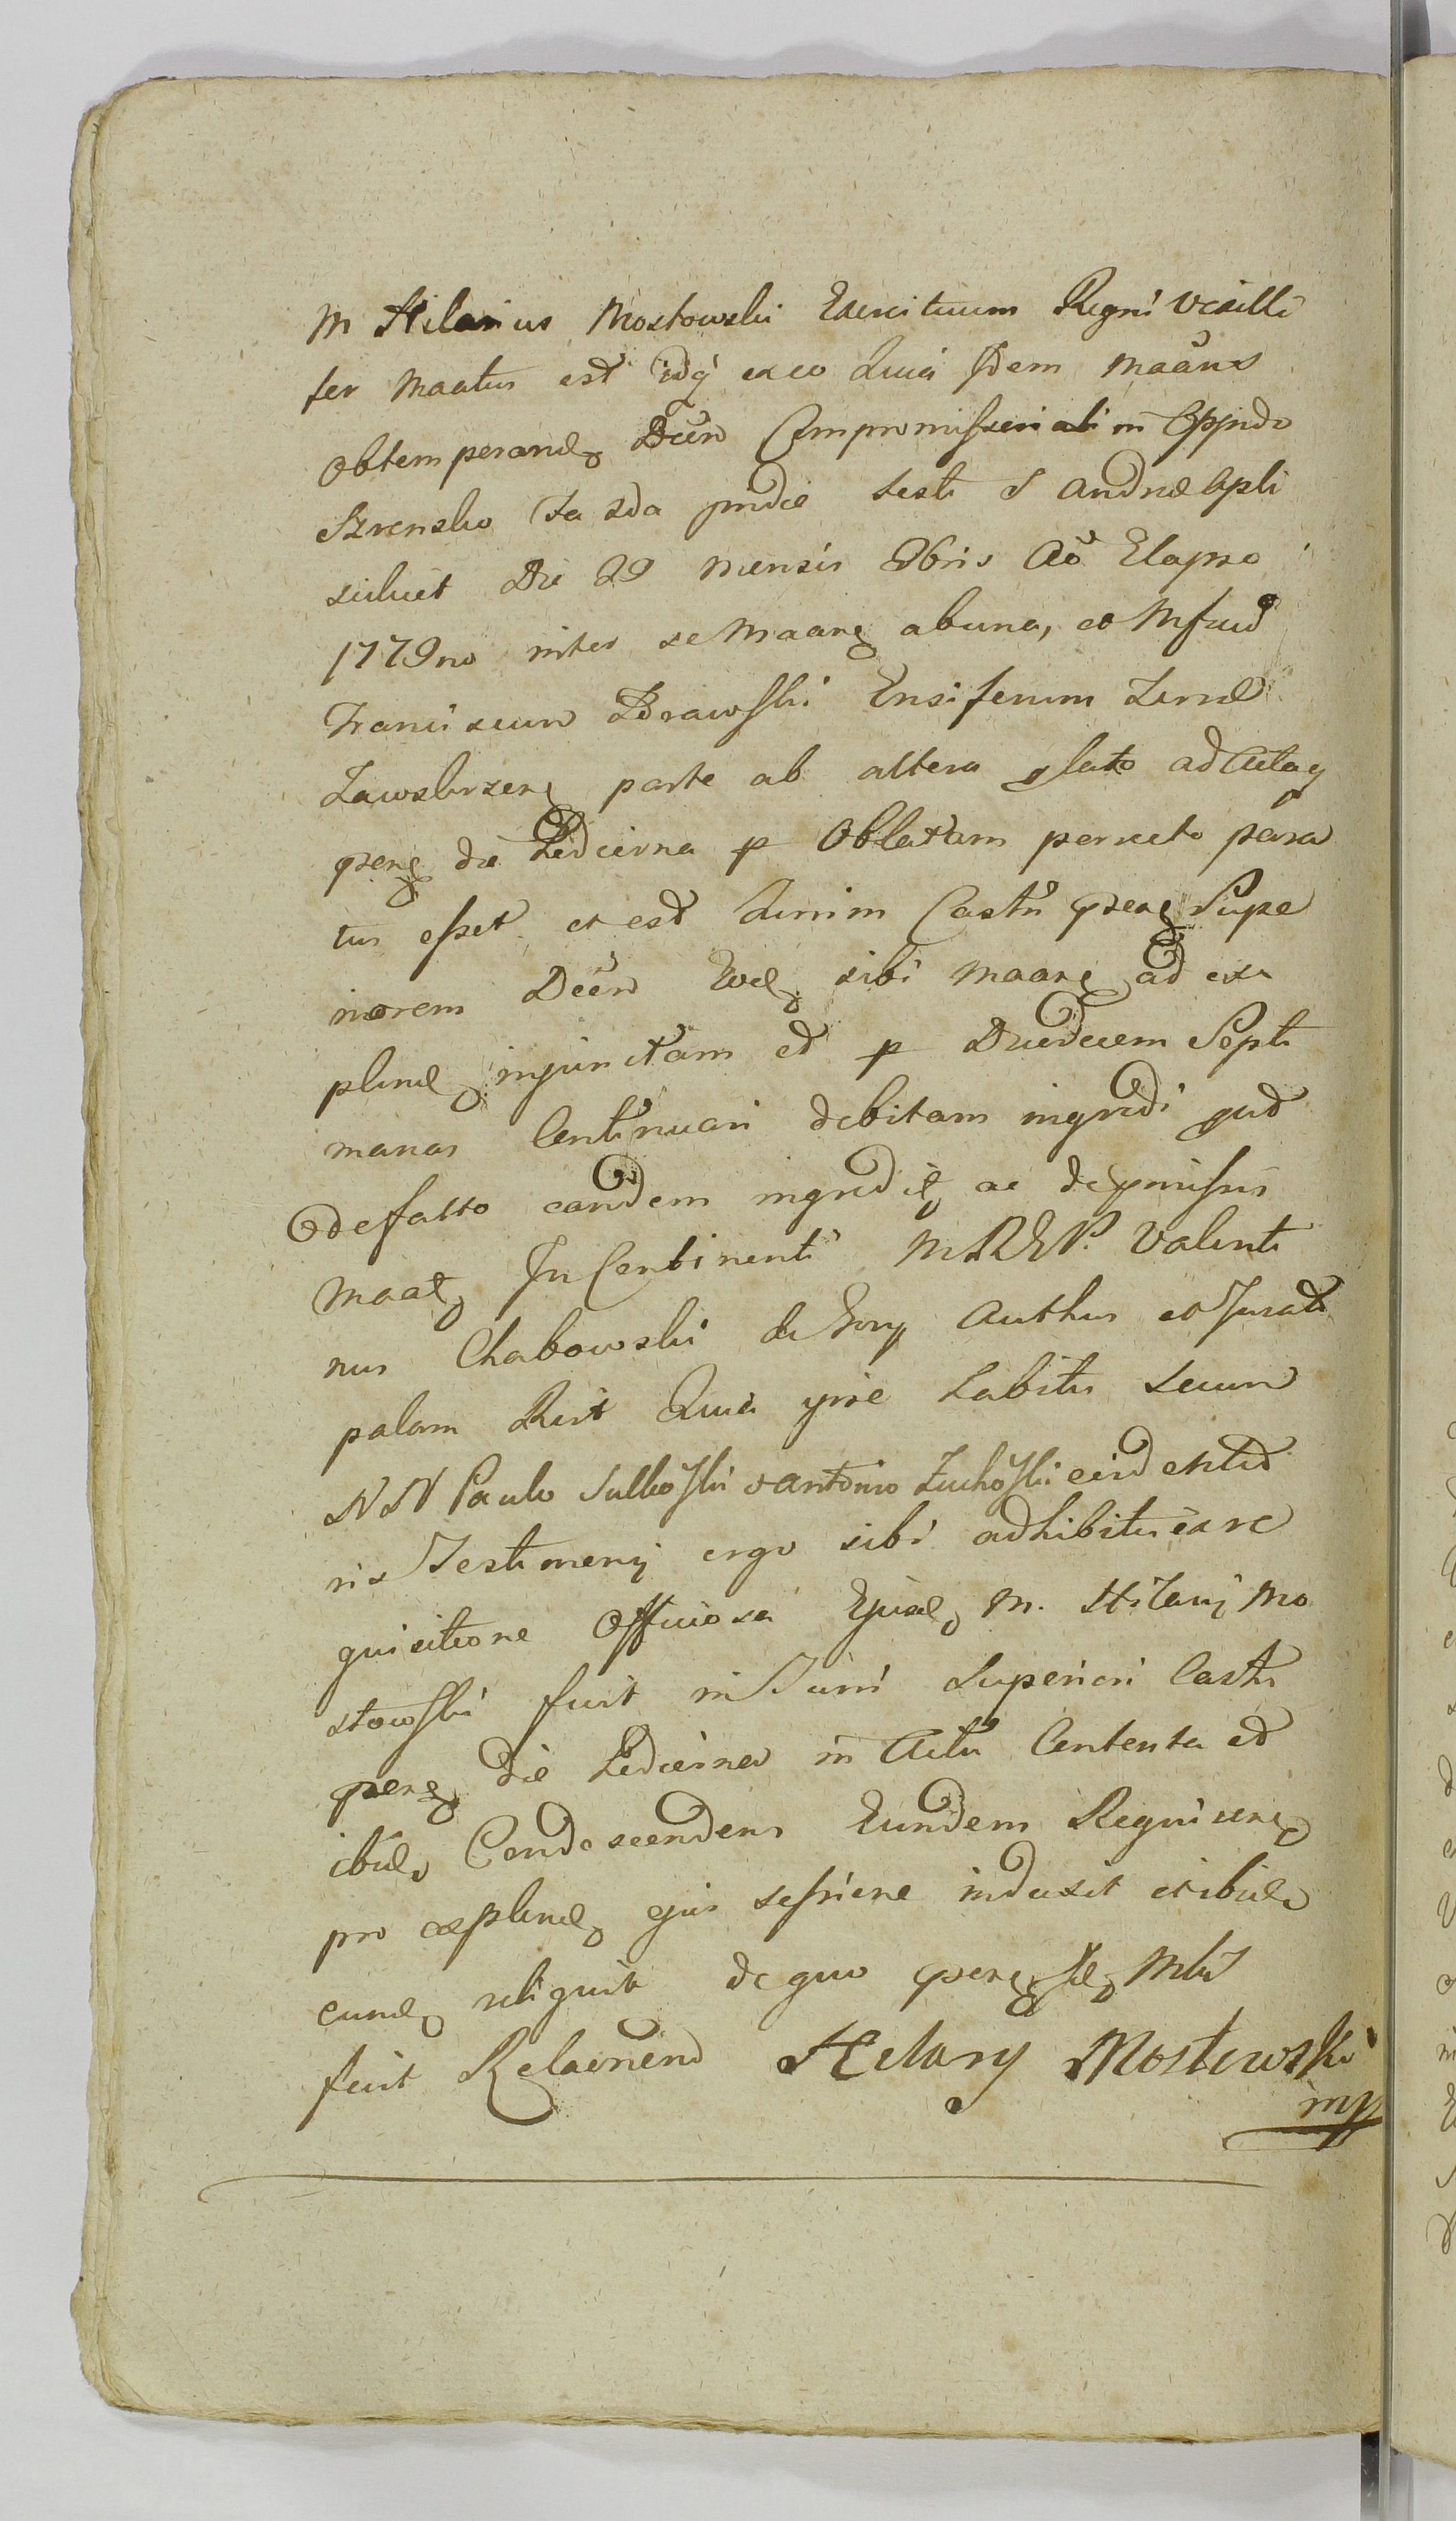 M Hilarius Mostowski Exercituum Regni Vexilli
fer Maatus est idq ex eo Quia Idem Maans
Obtemperando Decn Compromissoriali in Oppido
Szrensko Fa 2da pridie festi S Andreæ Apli
scilicet Die 29 mensis 9bris Ao Elapso
1779no inter se Maang ab una, et Mfcum
Franciscum Zdrawski Ensiferum Terræ
Zawskrzeng parte ab altera lato ad Acta
pseng die hodierna p Oblatam porrecto para
tus esset et est Turrim Castri pseng Supe
riorem Decn Eod sibi Maang ad exe
plend injunctam et p Duodecem Septi
manas Continuari debitam ingredi qud
de facto eandem ingredit ac depmissis
Maat In Continenti MREP. Valenti
nus Chabowski de Gory Authus et Jurati
palam Rect Quia ipse habitis secum
NN Paulo Sulkoski Antonio Zuchoski eid
ris Testimonij ergo sibi adhibitis ex re
quisitione Officiosa Ejusd M. Hilarij Mo
stowski fuit in Turri Superiori Castri
pseng die hodierna in Actu Contenta et
ibid Condescendens Eundem Requireng
pro explend ejus sessione induxit et ibid
eund reliquit de quo pseng Id Mtus
fecit Relaonend Hilary Mostowski
mp